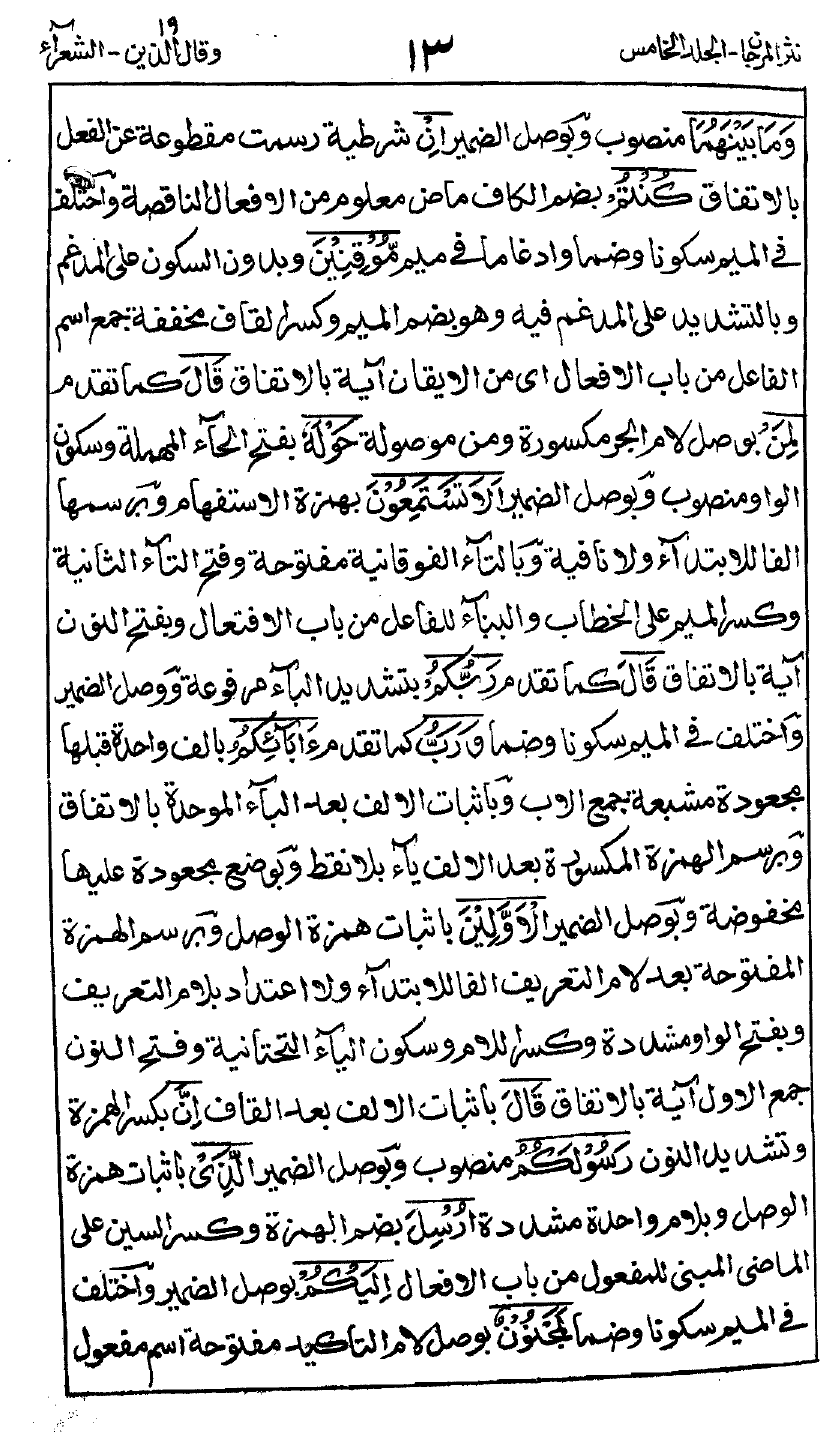 نثر المرجان - المجلد الخامس
١٣
وقال الذين ١٩ - الشعرآء
وَمَا بَيْنَهُمَا منصوب وبوصل الضمير اِنْ شرطية رسمت مقطوعة عن الفعل
بالاتفاق كُنْتُمْ بضم الكاف ماض معلوم من الافعال الناقصة واختلف
فى الميم سكونا وضما وادغاما فى ميم مُّوْقِنِيْنَ وبدون السكون على المدغم
وبالتشديد على المدغم فيه وهو بضم الميم وكسر القاف مخففة جمع اسم
الفاعل من باب الافعال اى من الايقان آية بالاتفاق قَالَ كما تقدم
لِمَنْ بوصل لام الجر مكسورة ومن موصولة حَوْلَهٗ بفتح الحآء المهملة وسكون
الواو منصوب وبوصل الضمير اَلَا تَسْتَمِعُوْنَ بهمزة الاستفهام وبرسمها
الفا للابتدآء ولا نافية وبالتآء الفوقانية مفتوحة وفتح التآء الثانية
وكسر الميم على الخطاب والبنآء للفاعل من باب الافتعال وبفتح النون
آية بالاتفاق قَالَ كما تقدم رَبُّكُمْ بتشديد البآء مرفوعة ووصل الضمير
واختلف فى الميم سكونا وضما وَرَبُّ كما تقدم ءَابَآئِكُمُ بالف واحدة قبلها
مجعودة مشبعة جمع الاب وباثبات الالف بعد البآء الموحدة بالاتفاق
وبرسم الهمزة المكسورة بعد الالف يآء بلا نقط وبوضع مجعودة عليها
مخفوضة وبوصل الضمير الْاَوَّلِيْنَ باثبات همزة الوصل وبرسم الهمزة
المفتوحة بعد لام التعريف الفا للابتدآء ولا اعتداد بلام التعريف
وبفتح الواو مشددة وكسر اللام وسكون اليآء التحتانية وفتح النون
جمع الاول آية بالاتفاق قَالَ باثبات الالف بعد القاف اِنَّ بكسر الهمزة
وتشديد النون رَسُوْلَكُمُ منصوب وبوصل الضمير الَّذِىْ باثبات همزة
الوصل وبلام واحدة مشددة اُرْسِلَ بضم الهمزة وكسر السين على
الماضى المبنى للمفعول من باب الافعال اِلَيْكُمْ بوصل الضمير واختلف
فى الميم سكونا وضما لَمَجْنُوْنٌ بوصل لام التاكيد مفتوحة اسم مفعول